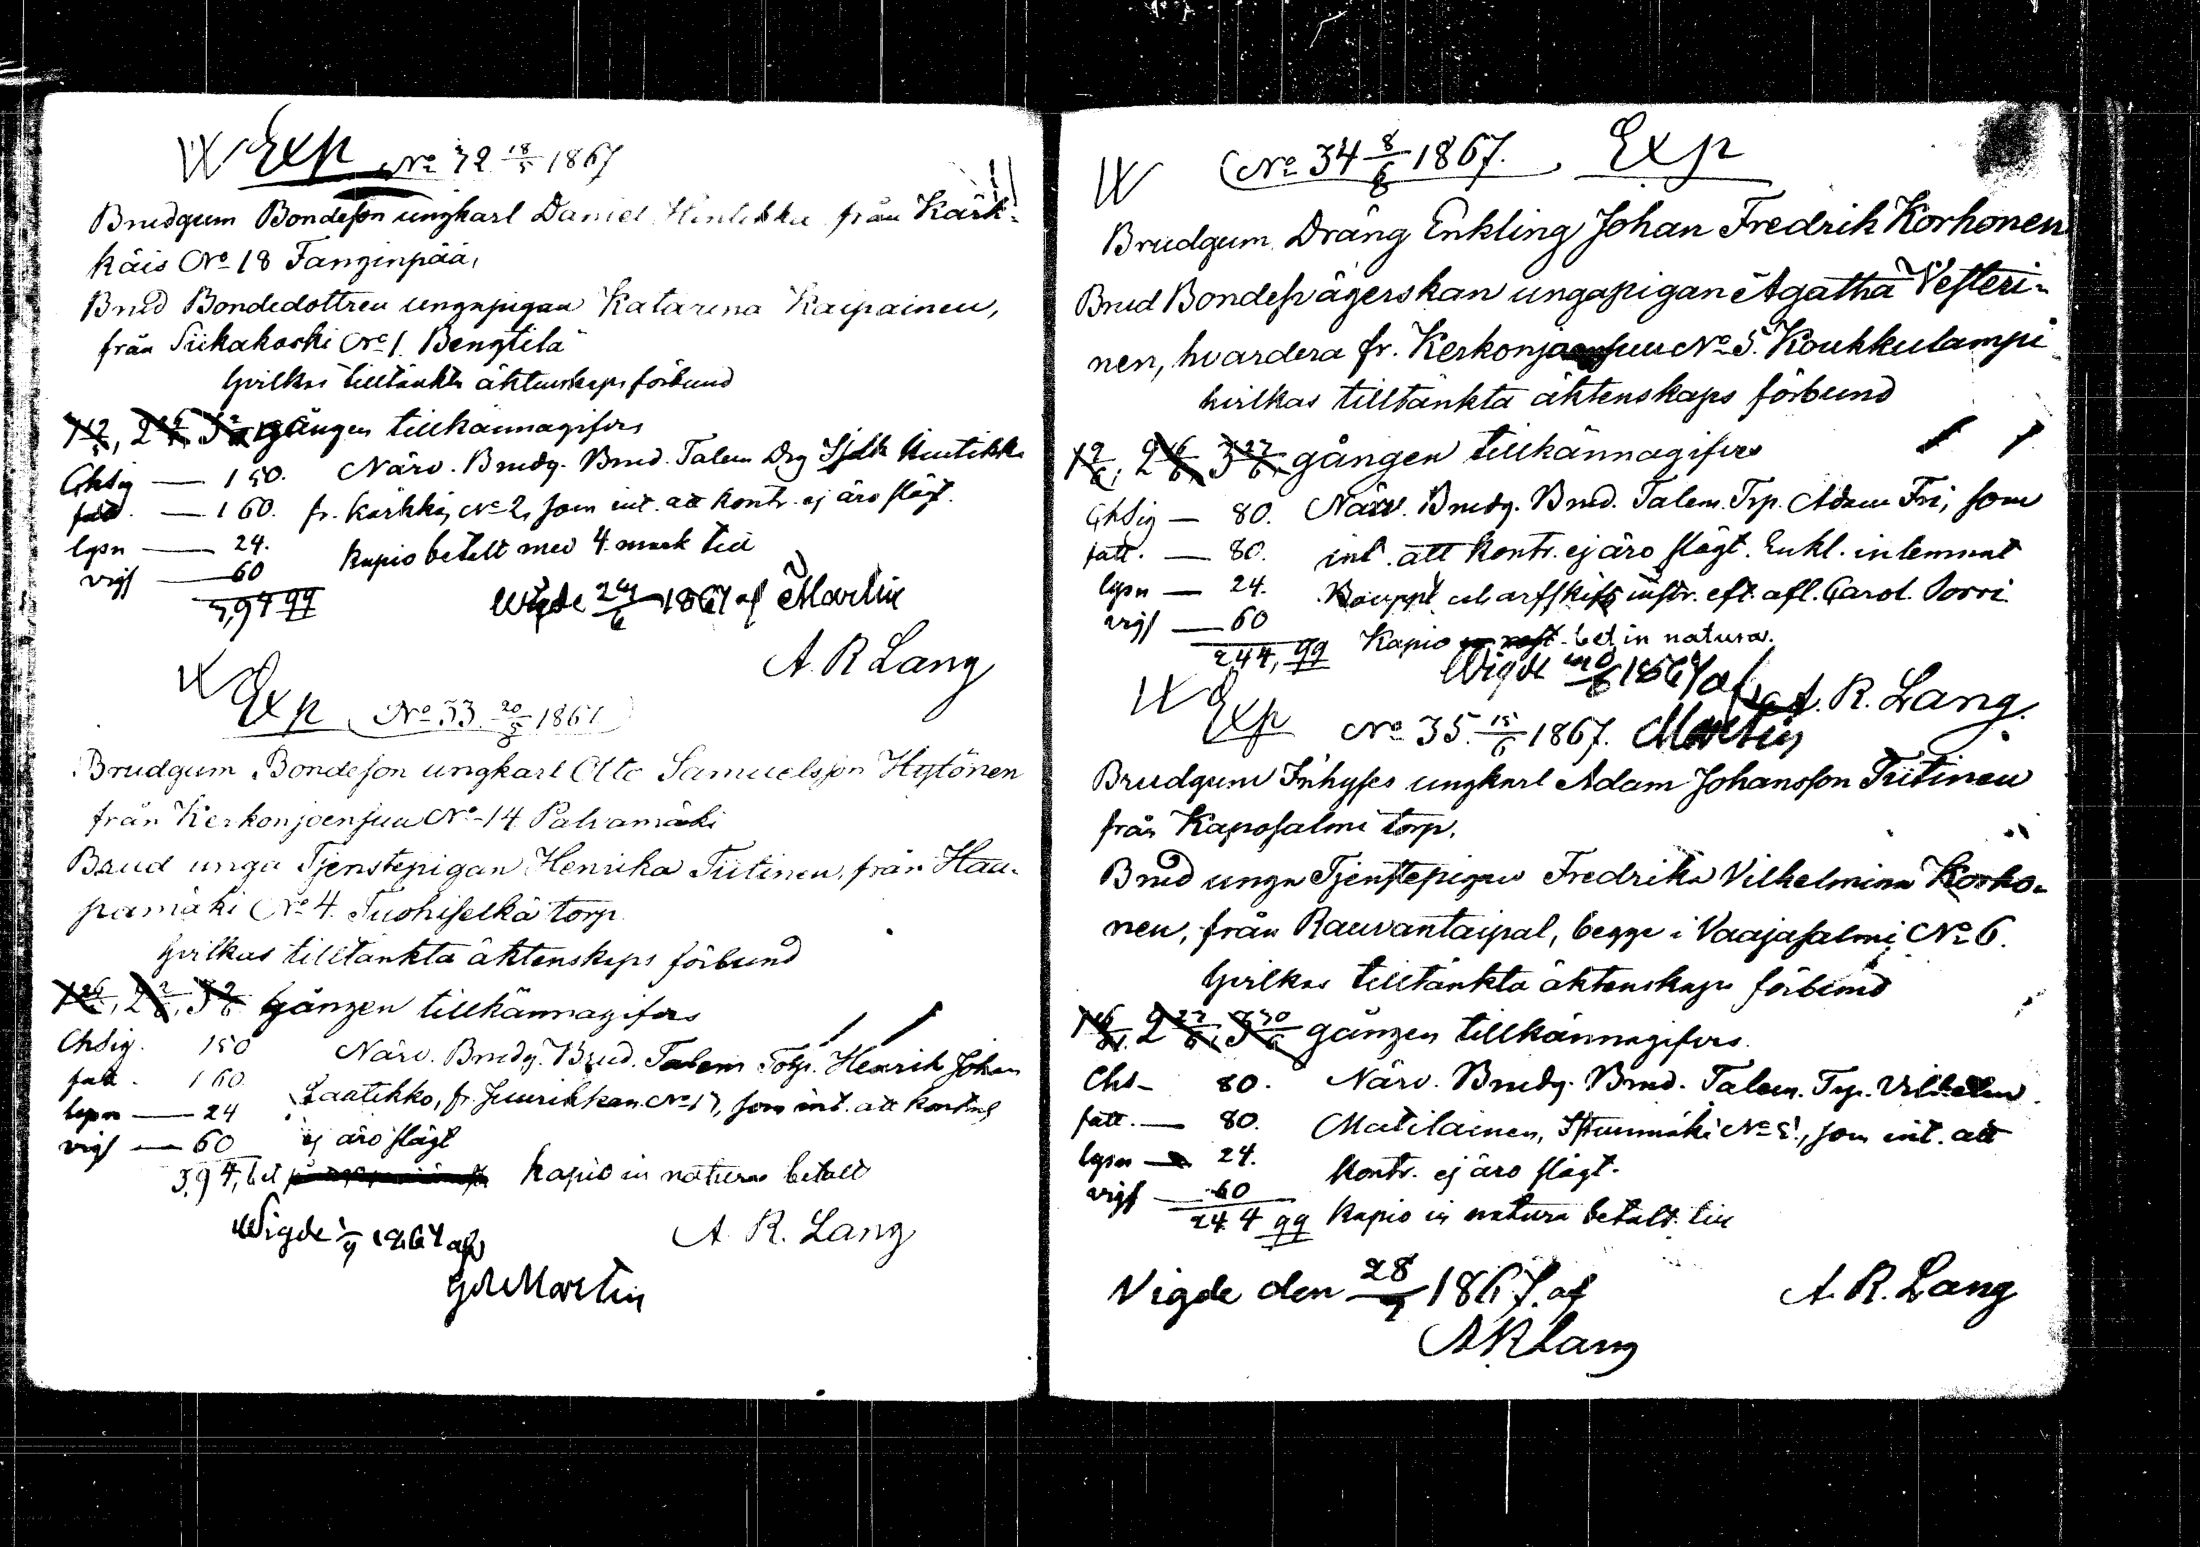 W Exp No 32 18/5 1867
Brudgum Bondeson ungkarl Daniel Hintikka från Kärk-
käis No 18 Tanginpää,
Brud Bondedottren ungapigan Katarina Kaipainen,
från Siikakoski No 1 Bengtilä
hvilkas tilltänkta äktenskaps förbund
gången tillkännagifves
Ghsig — 150. Närv. Brudg. Brud. Talem. Drg Hintikka
fatt. — 160. fr. Kärkkäis No 2, som int. att kontr. ej äro slägt.
lysn — 24. Kapio betalt med 4 mark till
vigs — 60
3,94 qq Wigde 24/6 1867 af Martin
A. R Lang
W Exp No 33 20/5 1867
Brudgum Bondeson ungkarl Otto Samuelsson Hytönen
från Kerkonjoensuu No 14 Palvamäki
Brud unga Tjenstepigan Henrika Tiitinen, från Hau-
pamäki No 4. Tuohiselkä torp.
hvilkas tilltänkta äktenskaps förbund
1 26/5, 2 2/6, 3 9/6 gången tillkännagifves
Chsig. 150 Närv. Brudg. Brud. Talem Henrik Johan
fatt. 160 Laatikko, fr. No 17, som int. att kontrah
lysn — 24 ej äro slägt
vigs — 60
3,94, bet Kapio in natura betalt
Wigde 1/9 1867 af A. R. Lang
Martin
W No 34 8/6 1867. Exp
Brudgum Dräng Enkling Johan Fredrik Korhonen
Brud Bondesp ägerskan ungapigan Agatha Vesteri-
nen, hvardera fr. Kerkonjoensuu No 5. Koukkulampi
hvilkas tilltänkta äktenskaps förbund
1 9/6, 2 16/6, 3 23/6 gången tillkännagifves
Ghsig — 80. Närv. Brudg. Brud. Talem. Trp. Adam Fri, som
fatt. — 80. int. att kontr. ej äro slägt. Enkl. inlemnat
lysn — 24. Bouppt. och arfskifts instr. eft. afl. Carol. Sorri
vigs — 60
244, qq Kapio bet in natura.
Wigde 1867 af A. R. Lang.
W Exp No 35. 15/6 1867. Martin
Brudgum Inhyses ungkarl Adam Johansson Tiitinen
från Kaposalmi torp.
Brud unga Tjenstepigan Fredrika Vilhelmina Korho-
nen, från Rauvantaipal, begge i Vaajasalmi No 6.
hvilkas tilltänkta äktenskaps förbund
1 16/6, 2 23/6, 3 30/6 gången tillkännagifves.
Chs — 80. Närv. Brudg. Brud. Talem. Trp. Vilhelm
fatt. — 80. Matilainen, Istunmäki No 5, som int. att
lysn — 24. kontr. ej äro slägt.
vigs — 60
244 qq Kapio in natura betalt till
Vigde den 28/7 1867. af A. R. Lang
A R Lang